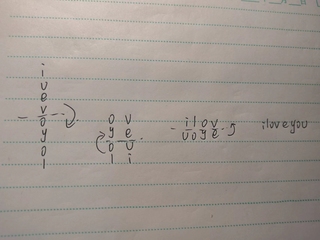 i
u
e
v
o
y
o
l
o v
y e
o u
l i
i l o v
u o y e
iloveyou